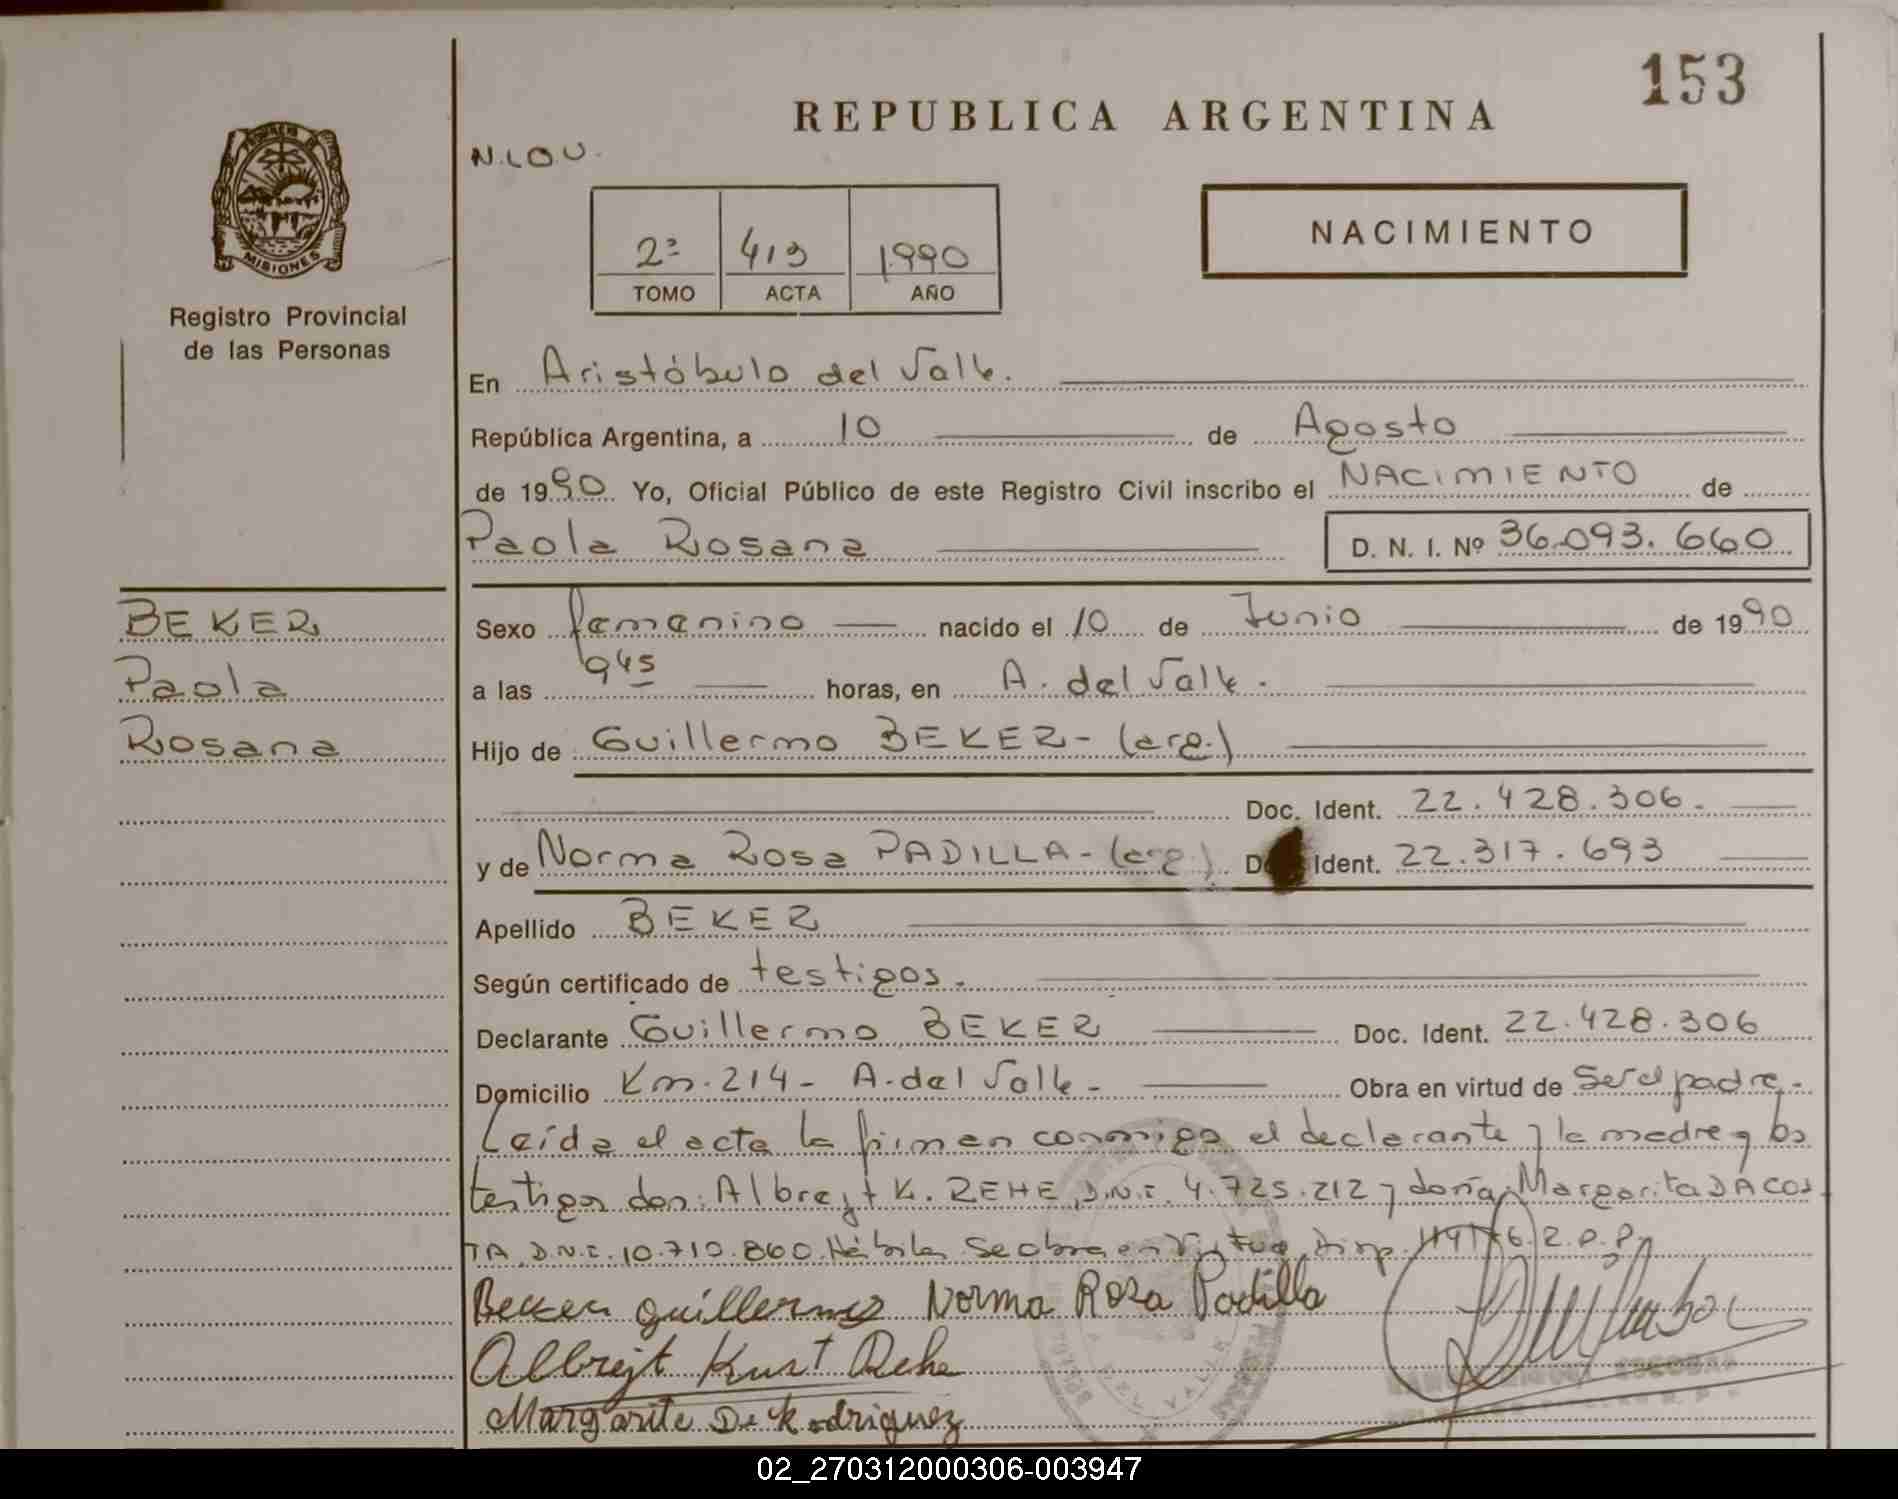 153
REPUBLICA ARGENTINA
N.LOU.
MISIONES
2ª 413 1990
TOMO ACTA AÑO
NACIMIENTO
Registro Provincial
de las Personas
En Aristóbulo del Valle.
República Argentina, a 10 de Agosto
de 1990 Yo, Oficial Público de este Registro Civil inscribo el NACIMIENTO de
Paola Rosana D. N. I. Nº 36.093.660
BEKER
Paola
Rosana
Sexo femenino nacido el 10 de Junio de 1990
a las 945 horas, en A. del Valle.
Hijo de Guillermo BEKER - (arg.)
Doc. Ident. 22.428.306.
y de Norma Rosa PADILLA - (arg.) Ident. 22.317.693
Apellido BEKER
Según certificado de testigos.
Declarante Guillermo BEKER Doc. Ident. 22.428.306
Domicilio Km. 214 - A. del Valle - Obra en virtud de ser el padre.-
Leída el acta la firman conmigo el declarante y la madre y los
testigos don: Albrejt K. REHE, D.N.I. 4.725.212 y doña: Margarita DACOS
TA, D.N.I. 10.710.860. Hábiles. Se obra en virtud, Disp. R.P.P.
Beker guillermo Norma Rosa Padilla
Albrejt Kurt Rehe
Margarite De Rodriguez
DEL VALLE
02_270312000306-003947